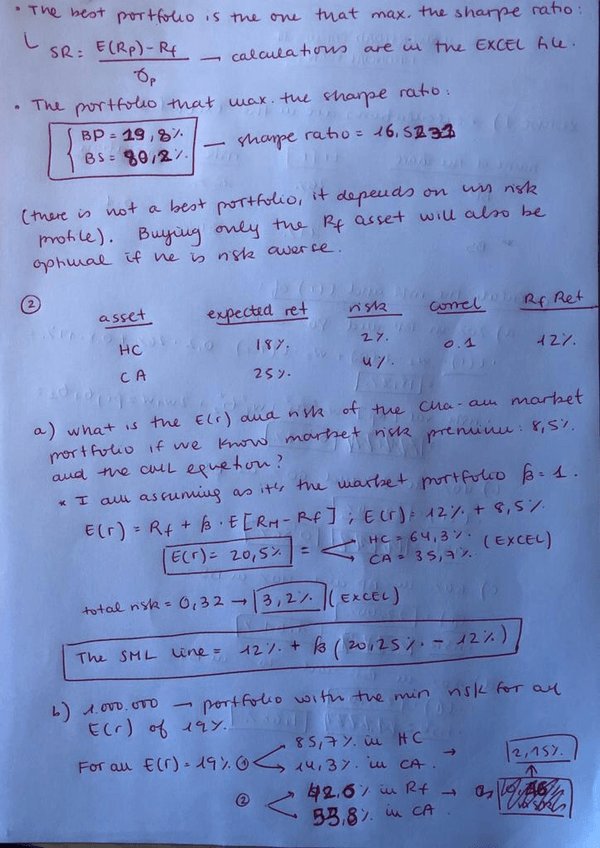 • The best portfolio is the one that max. the sharpe ratio:
SR = E(Rp) - Rf / σp → calculations are in the EXCEL file.
• The portfolio that max. the sharpe ratio:
BP = 19,8%
BS = 80,2% — sharpe ratio = 16,5233
(there is not a best portfolio, it depends on un risk
profile). Buying only the Rf asset will also be
optimal if he is risk averse.
② asset expected ret risk correl Rf Ret
HC 18% 2% 0.1 12%
CA 25% 4%
a) what is the E(r) and risk of the Cha-am market
portfolio if we know market risk premium: 8,5%
and the CML equation?
* I am assuming as it's the market portfolio β = 1.
E(r) = Rf + β · E[RM - Rf] ; E(r) = 12% + 8,5%
E(r) = 20,5% = HC = 64,3% (EXCEL)
CA = 35,7%
total risk = 0,32 → 3,2% (EXCEL)
The SML line = 12% + β (20,25% - 12%)
b) 1.000.000 → portfolio with the min risk for an
E(r) of 19%.
For an E(r) = 19% ① 85,7% in HC → 2,15%
14,3% in CA.
② 42,6% in Rf →
53,8% in CA.